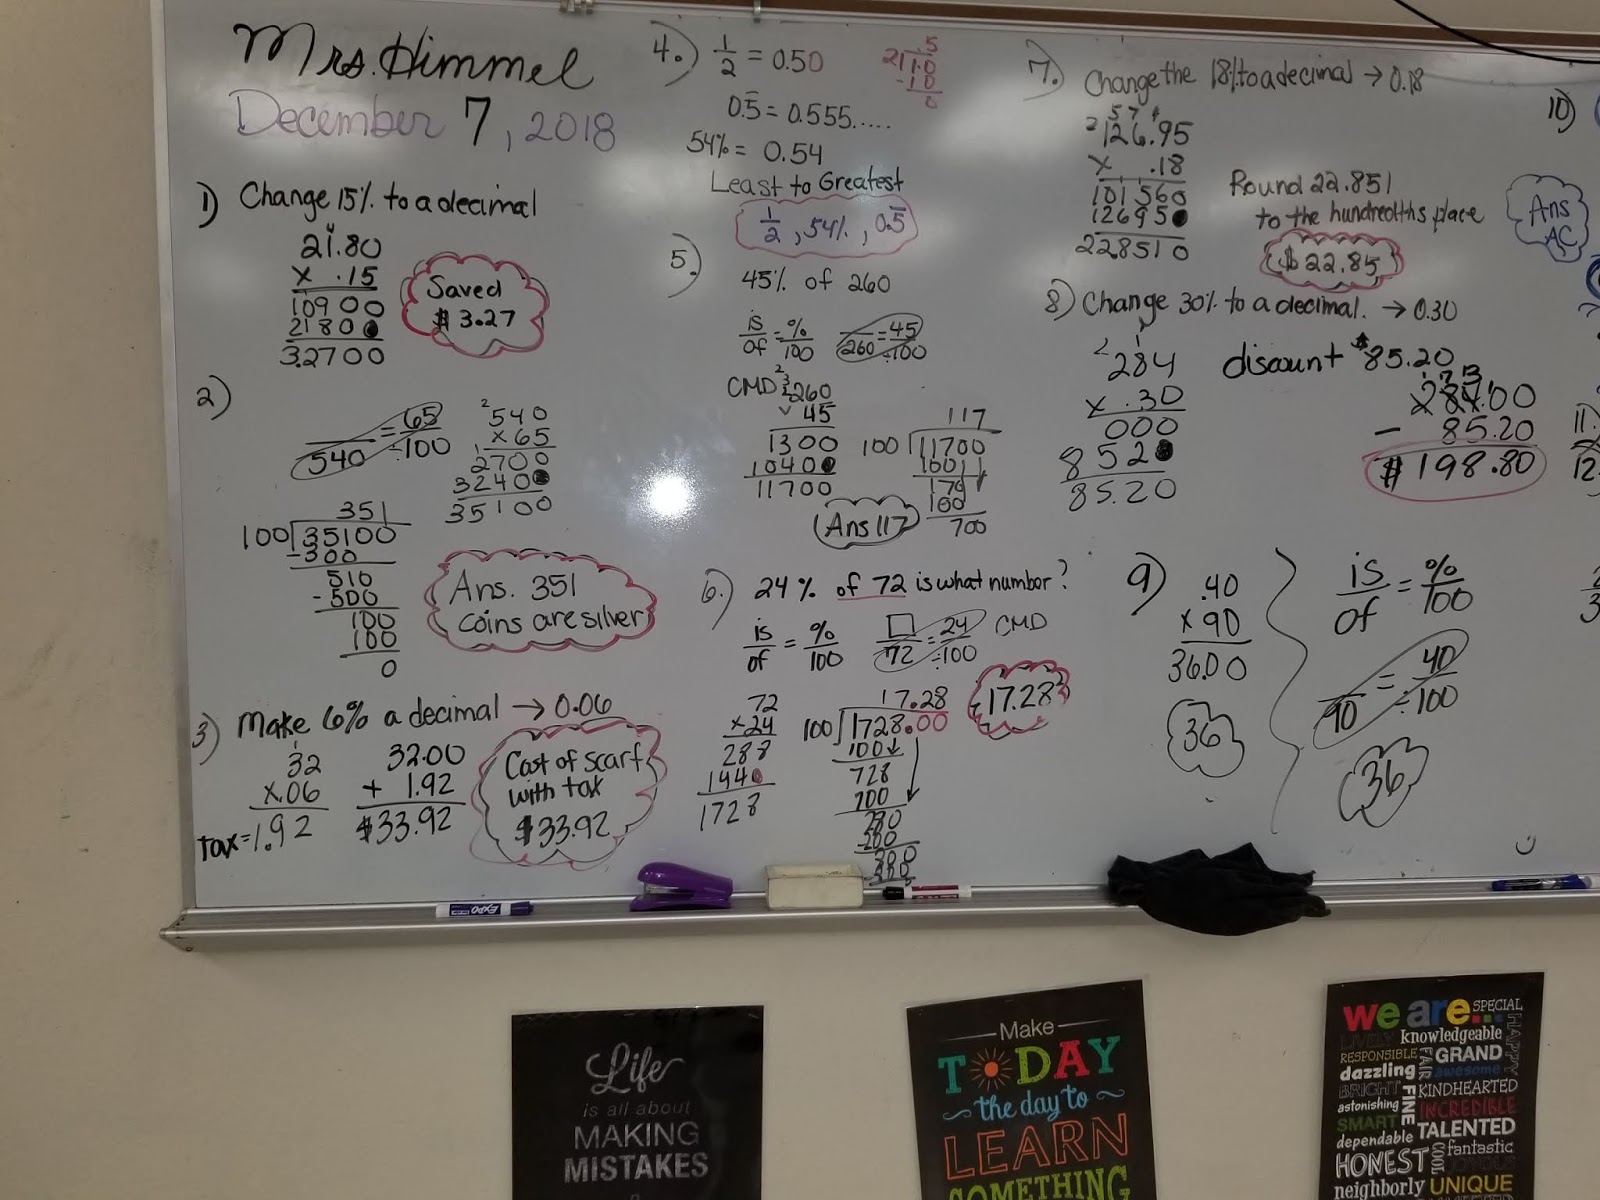 Mrs. Himmel
December 7, 2018
1) Change 15% to a decimal
21.80
x .15
10900
21800
3.2700
Saved
$3.27
2)
540 = 65 ÷100
540
x 65
2700
32400
35100
351
100 35100
-300
510
-500
100
100
0
Ans. 351
coins are silver
3) Make 6% a decimal → 0.06
32
x.06
tax = 1.92
32.00
+ 1.92
$33.92
Cost of scarf
with tax
$33.92
4.) 1/2 = 0.50
.5
2 1.0
-10
0
0.5̅ = 0.555.....
54% = 0.54
Least to Greatest
1/2, 54%, 0.5̅
5.)
45% of 260
is/of = %/100
260 = 45 ÷100
CMD
260
45
1300
10400
11700
117
100 11700
100
170
100
700
Ans 117
6.) 24% of 72 is what number?
is/of = %/100
□/72 = 24 ÷100 CMD
72
x24
288
1440
1728
17.28
100 1728.00
100
728
700
280
200
17.28
7.) Change the 18% to a decimal → 0.18
126.95
x .18
101560
126950
228510
Round 22.851
to the hundredths place
$22.85
8) Change 30% to a decimal. → 0.30
284
x .30
000
8520
85.20
discount $85.20
284.00
- 85.20
$198.80
9)
.40
x 90
36.00
36
is/of = %/100
90 = 40 ÷100
36
10)
Ans
AC
11.
12.
EXPO
Life
is all about
MAKING
MISTAKES
Make
TODAY
the day to
LEARN
SOMETHING
we are...
SPECIAL
HAPPY
LIVELY
knowledgeable
RESPONSIBLE
FAIR
GRAND
dazzling
awesome
BRIGHT
FINE
KINDHEARTED
astonishing
INCREDIBLE
SMART
TALENTED
dependable
COOL
fantastic
HONEST
neighborly
UNIQUE